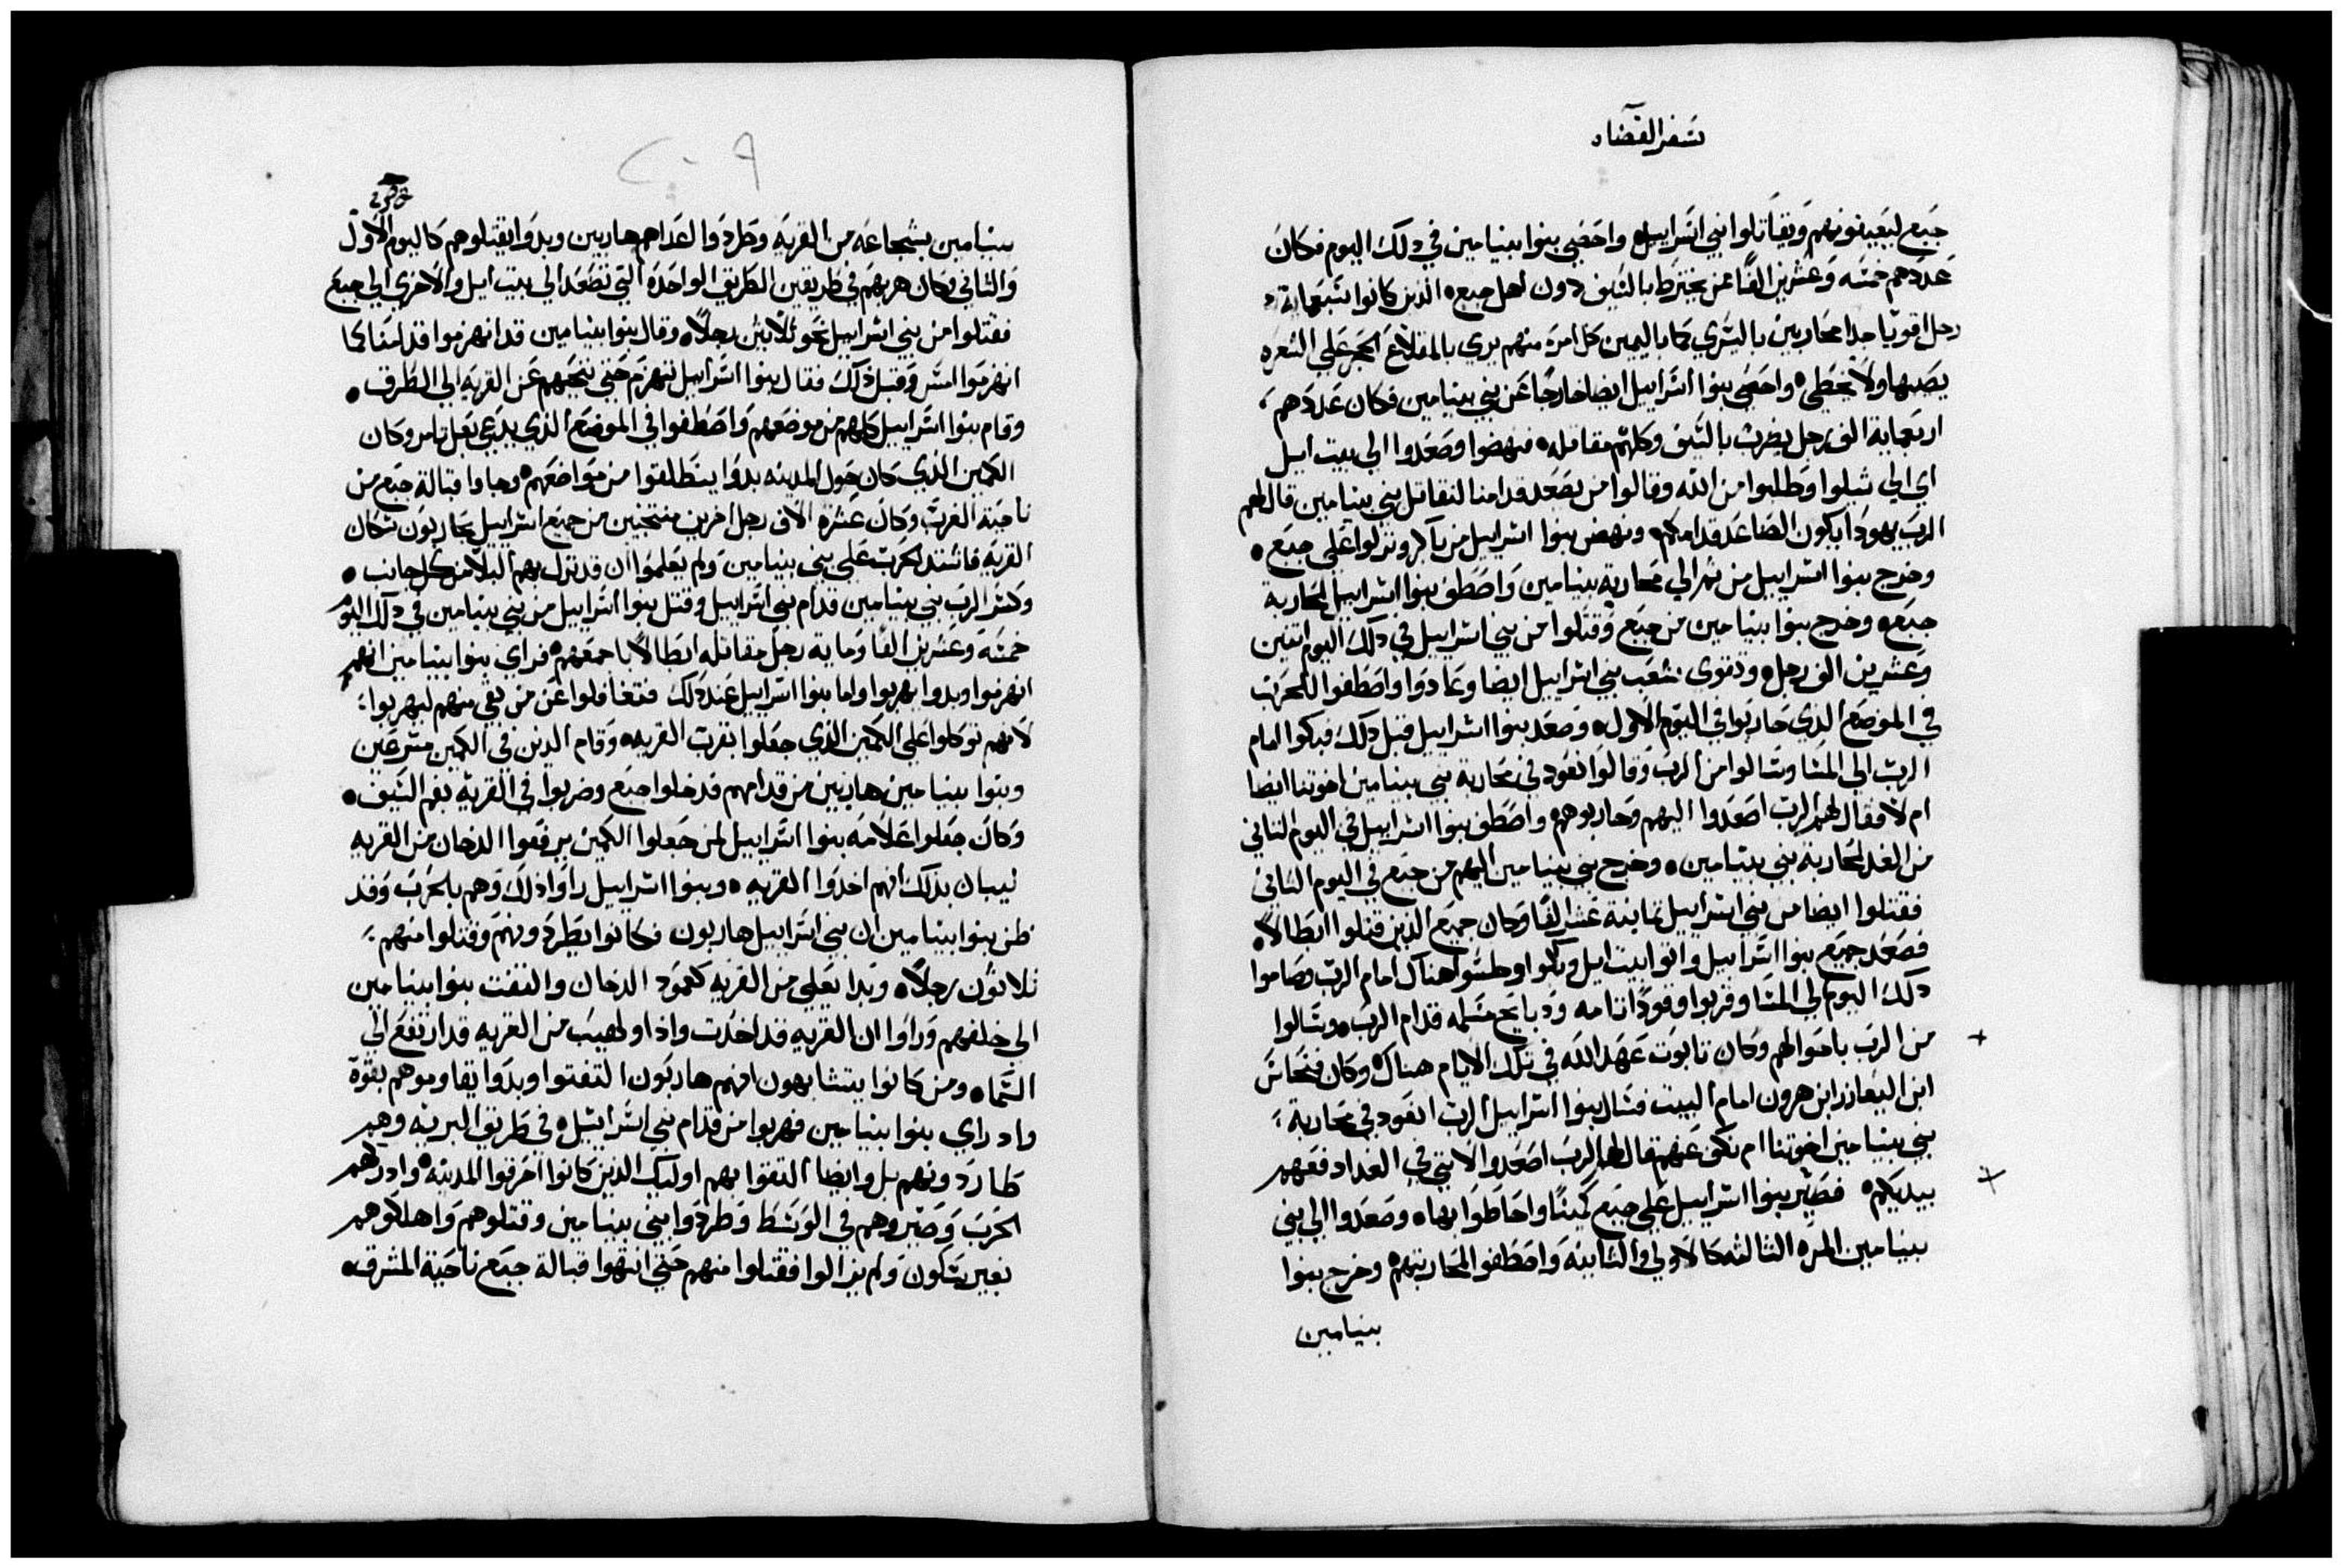 سفر القضاه
جبع ليعينونهم ويقاتلوا بني اسراييل واحصي بنوا بنيامين في دلك اليوم فكان
عددهم خمسه وعشرين الفا ممن يخترط بالسيف دون اهل جبعه الدين كانوا سبعماية
رجل اقويا جدا محاربين باليسري كما باليمين كل امرء منهم يرمي بالمقلاع الحجر علي الشعره
يصبها ولا يخطي واحصي بنوا اسراييل ايضا خارجا عن بني بنيامين فكان عددهم
اربعماية الف رجل يضرب بالسيف وكلهم مقاتله فنهضوا وصعدوا الي بيت ايل
اي الي شيلوا وطلبوا من الله وقالوا من يصعد قدامنا لنقاتل بني بنيامين قال لهم
الرب يهودا يكون الصاعد قدامكم ونهض بنوا اسراييل من باكر ونزلوا علي جبع
وخرج بنوا اسراييل من ثم الي محاربة بنيامين واصطف بنوا اسراييل لمحاربة
جبعه وخرج بنوا بنيامين من جبع وقتلوا من بني اسراييل في دلك اليوم اثنين
وعشرين الف رجل وتقوي شعب بني اسراييل ايضا وعادوا واصطفوا للحرب
في الموضع الدي حاربوا في اليوم الاول وصعد بنوا اسراييل قبل دلك فبكوا امام
الرب الي المسا وسالوا من الرب وقالوا نعود في محاربة بني بنيامين اخوتنا ايضا
ام لا فقال لهم الرب اصعدوا اليهم وحاربوهم واصطف بنوا اسراييل في اليوم الثاني
من الغد لمحاربة بني بنيامين وخرج بني بنيامين اليهم من جبع في اليوم الثاني
فقتلوا ايضا من بني اسراييل ثمانية عشر الفا وكان جميع الدين قتلوا ابطالا
فصعد جميع بنوا اسراييل واتوا بيت ايل وبكوا وجلسوا هناك امام الرب وصاموا
دلك اليوم الي المسا وقربوا وقودا تامه ودبايح مسلمه قدام الرب وسالوا
من الرب باحوالهم وكان تابوت عهد الله في تلك الايام هناك وكان فنحاس
ابن اليعازر ابن هرون امام البيت فسال بنوا اسراييل الرب انعود في محاربة
بني بنيامين اخوتنا ام نكف عنهم قال لهم الرب اصعدوا لانني في الغد ادفعهم
بيديكم فصير بنوا اسراييل علي جبع كمينا واحاطوا بها وصعدوا الي بني
بنيامين المره الثالثه كالاولي والثانيه واصطفوا لمحاربتهم وخرج بنوا
بنيامين
بنيامين بشجاعه من القريه وطردوا اعداهم هاربين وبدوا يقتلوهم كاليوم الاول
والثاني وكان هربهم في طريقين الطريق الواحده التي تصعد الي بيت ايل والاخري الي جبع
فقتلوا من بني اسراييل نحو ثلاثين رجلا وقال بنوا بنيامين قد انهزموا قدامنا كما
انهزموا امس وقبل دلك فقال بنوا اسراييل ننهزم حتي ننحيهم عن القريه الي الطرق
وقام بنوا اسراييل كلهم من موضعهم واصطفوا في الموضع الذي يدعي بعل تامر وكان
الكمين الذي كان حول المدينه بدوا ينطلقوا من مواضعهم وجاوا قبالة جبع من
ناحية الغرب وكان عشرة الاف رجل اخرين منتخبين من جميع اسراييل يحاربون سكان
القريه فاشتد الحرب علي بني بنيامين ولم يعلموا ان قد نزل بهم البلا من كل جانب
وكسر الرب بني بنيامين قدام بني اسراييل وقتل بنوا اسراييل من بني بنيامين في دلك اليوم
خمسه وعشرين الفا وماية رجل مقاتله ابطالا باجمعهم فراي بنوا بنيامين انهم
انهزموا وبدوا يهربوا واما بنوا اسراييل عند دلك فتغافلوا عن من بقي منهم ليهربوا
لانهم توكلوا علي الكمين الذي جعلوا بقرب القريه وقام الدين في الكمين مسرعين
وبنوا بنيامين هاربين من قدامهم فدخلوا جبع وضربوا في القريه بفم السيف
وكان جعلوا علامه بنوا اسراييل لمن جعلوا الكمين يرفعوا الدخان من القريه
ليبان بذلك انهم اخدوا القريه وبنوا اسراييل راوا ذلك وهم بالحرب وقد
ظن بنوا بنيامين ان بني اسراييل هاربون فكانوا يطردونهم وقتلوا منهم
ثلاثون رجلا وبدا يعلي من القريه كعمود الدخان والتفت بنوا بنيامين
الي خلفهم وراوا ان القريه قد اخدت واذا ولهيب من القريه قد ارتفع الي
السماه ومن كانوا يتشابهون انهم هاربون التفتوا وبدوا يقاوموهم بقوة
واد راي بنوا بنيامين فهربوا من قدام بني اسراييل في طريق البريه وهم
طاردونهم بل وايضا التقوا بهم اوليك الدين كانوا احرقوا المدينه وادركهم
الحرب وصيروهم في الوسط وطردوا بني بنيامين وقتلوهم واهلكوهم
بغير سكون ولم يزالوا فقتلوا منهم حتي انتهوا قبالة جبع ناحية المشرق